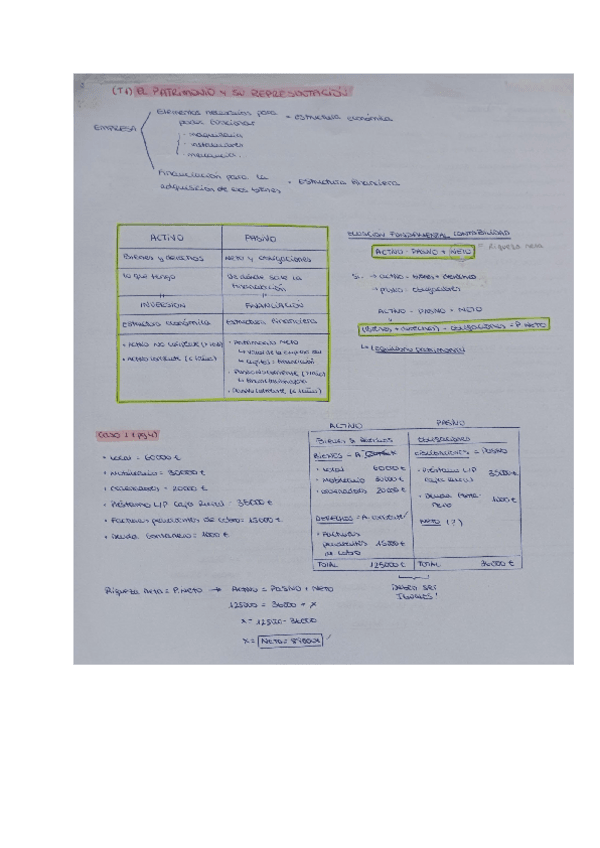 (T1) EL PATRIMONIO Y SU REPRESENTACIÓN
EMPRESA
Elementos necesarios para
poder funcionar = estructura económica
· maquinaria
· instalaciones
· mercancía
Financiación para la
adquisición de esos bienes = estructura financiera
ACTIVO PASIVO
Bienes y derechos Neto y obligaciones
lo que tengo De dónde sale la
financiación
INVERSIÓN FINANCIACIÓN
Estructura económica Estructura financiera
• Activo no corriente (> 1 año)
• Activo corriente (< 1 año)
• Patrimonio Neto
• Pasivo no corriente (> 1 año)
• Pasivo corriente (< 1 año)
ECUACIÓN FUNDAMENTAL CONTABILIDAD
ACTIVO = PASIVO + NETO = Riqueza neta
Si → activo = bienes + derechos
→ pasivo = obligaciones
ACTIVO - PASIVO = NETO
(Bienes + derechos) - obligaciones = P. NETO
↳ Equilibrio patrimonial
Caso 1.1 pg 4)
• Local = 60000 €
• Mobiliario = 30000 €
• Ordenadores = 20000 €
• Préstamo L/P Caja Rural = 35000 €
• Facturas pendientes de cobro = 15000 €
• Deuda = 1000 €
ACTIVO PASIVO
Bienes y Derechos Obligaciones
BIENES = A.
OBLIGACIONES = PASIVO
• Local 60000 €
• Mobiliario 30000 €
• Ordenadores 20000 €
• Préstamo L/P
Caja Rural 35000 €
• Deuda 1000 €
DERECHOS = A. corriente
NETO (?)
• Facturas
pendientes
de cobro 15000 €
TOTAL 125000 € TOTAL 36000 €
DEBEN SER
IGUALES!
Riqueza neta = P. Neto → ACTIVO = PASIVO + NETO
125000 = 36000 + x
x = 125000 - 36000
x = NETO = 89000 €